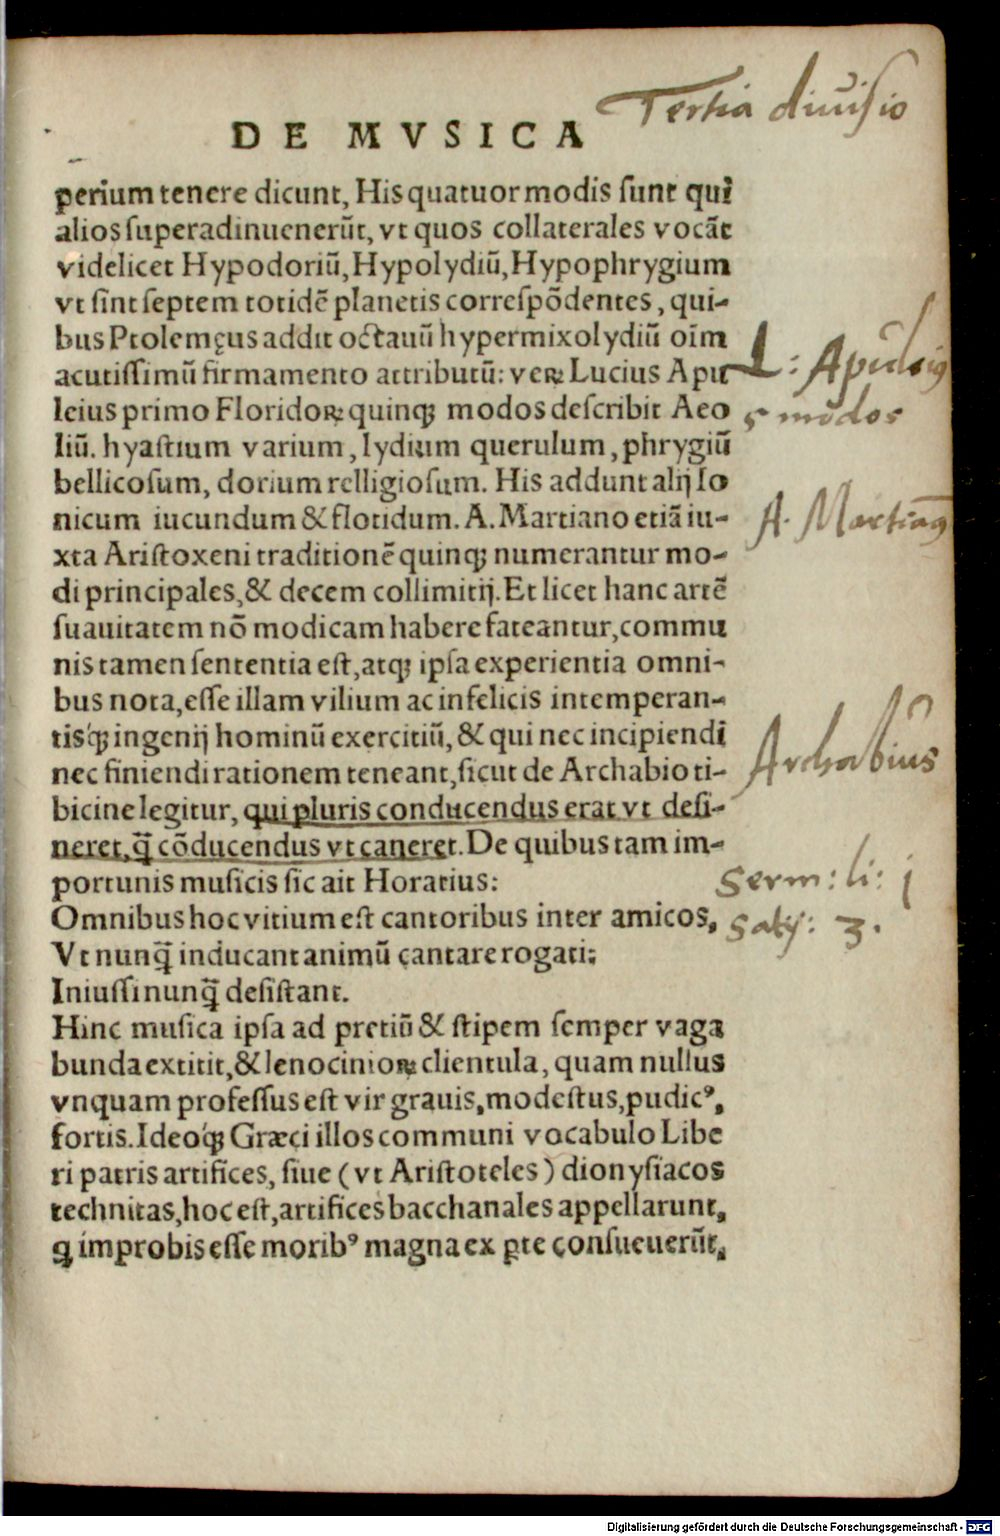 Tertia diuisio
DE MVSICA
perium tenere dicunt, His quatuor modis sunt qui
alios superadinuenerūt, vt quos collaterales vocāt
videlicet Hypodoriū, Hypolydiū, Hypophrygium
vt sint septem totidē planetis correspōdentes, qui-
bus Ptolemęus addit octauū hypermixolydiū oīm
acutissimū firmamento attributū: veꝝ Lucius Apu
leius primo Floridoꝝ quinqꝫ modos describit Aeo
liū. hyastium varium, lydium querulum, phrygiū
bellicosum, dorium relligiosum. His addunt alij Io
nicum iucundum & floridum. A. Martiano etiā iu-
xta Aristoxeni traditionē quinqꝫ numerantur mo-
di principales, & decem collimitij. Et licet hanc artē
suauitatem nō modicam habere fateantur, commu
nis tamen sententia est, atqꝫ ipsa experientia omni-
bus nota, esse illam vilium ac infelicis intemperan-
tisqꝫ ingenij hominū exercitiū, & qui nec incipiendi
nec finiendi rationem teneant, sicut de Archabio ti-
bicine legitur, qui pluris conducendus erat vt desi-
neret, q̄ꝫ cōducendus vt caneret. De quibus tam im-
portunis musicis sic ait Horatius:
Omnibus hoc vitium est cantoribus inter amicos,
Vt nunq̄ꝫ inducant animū cantare rogati:
Iniussi nunq̄ꝫ desistant.
Hinc musica ipsa ad pretiū & stipem semper vaga
bunda extitit, & lenocinioꝝ clientula, quam nullus
vnquam professus est vir grauis, modestus, pudicꝰ,
fortis. Ideoqꝫ Græci illos communi vocabulo Libe
ri patris artifices, siue (vt Aristoteles) dionysiacos
technitas, hoc est, artifices bacchanales appellarunt,
ꝗ improbis esse moribꝰ magna ex ꝑte consueuerūt,
L: Apuleius
5 modos
A. Martianꝰ
Archabius
Serm: li: j
Saty: 3.
Digitalisierung gefördert durch die Deutsche Forschungsgemeinschaft - DFG